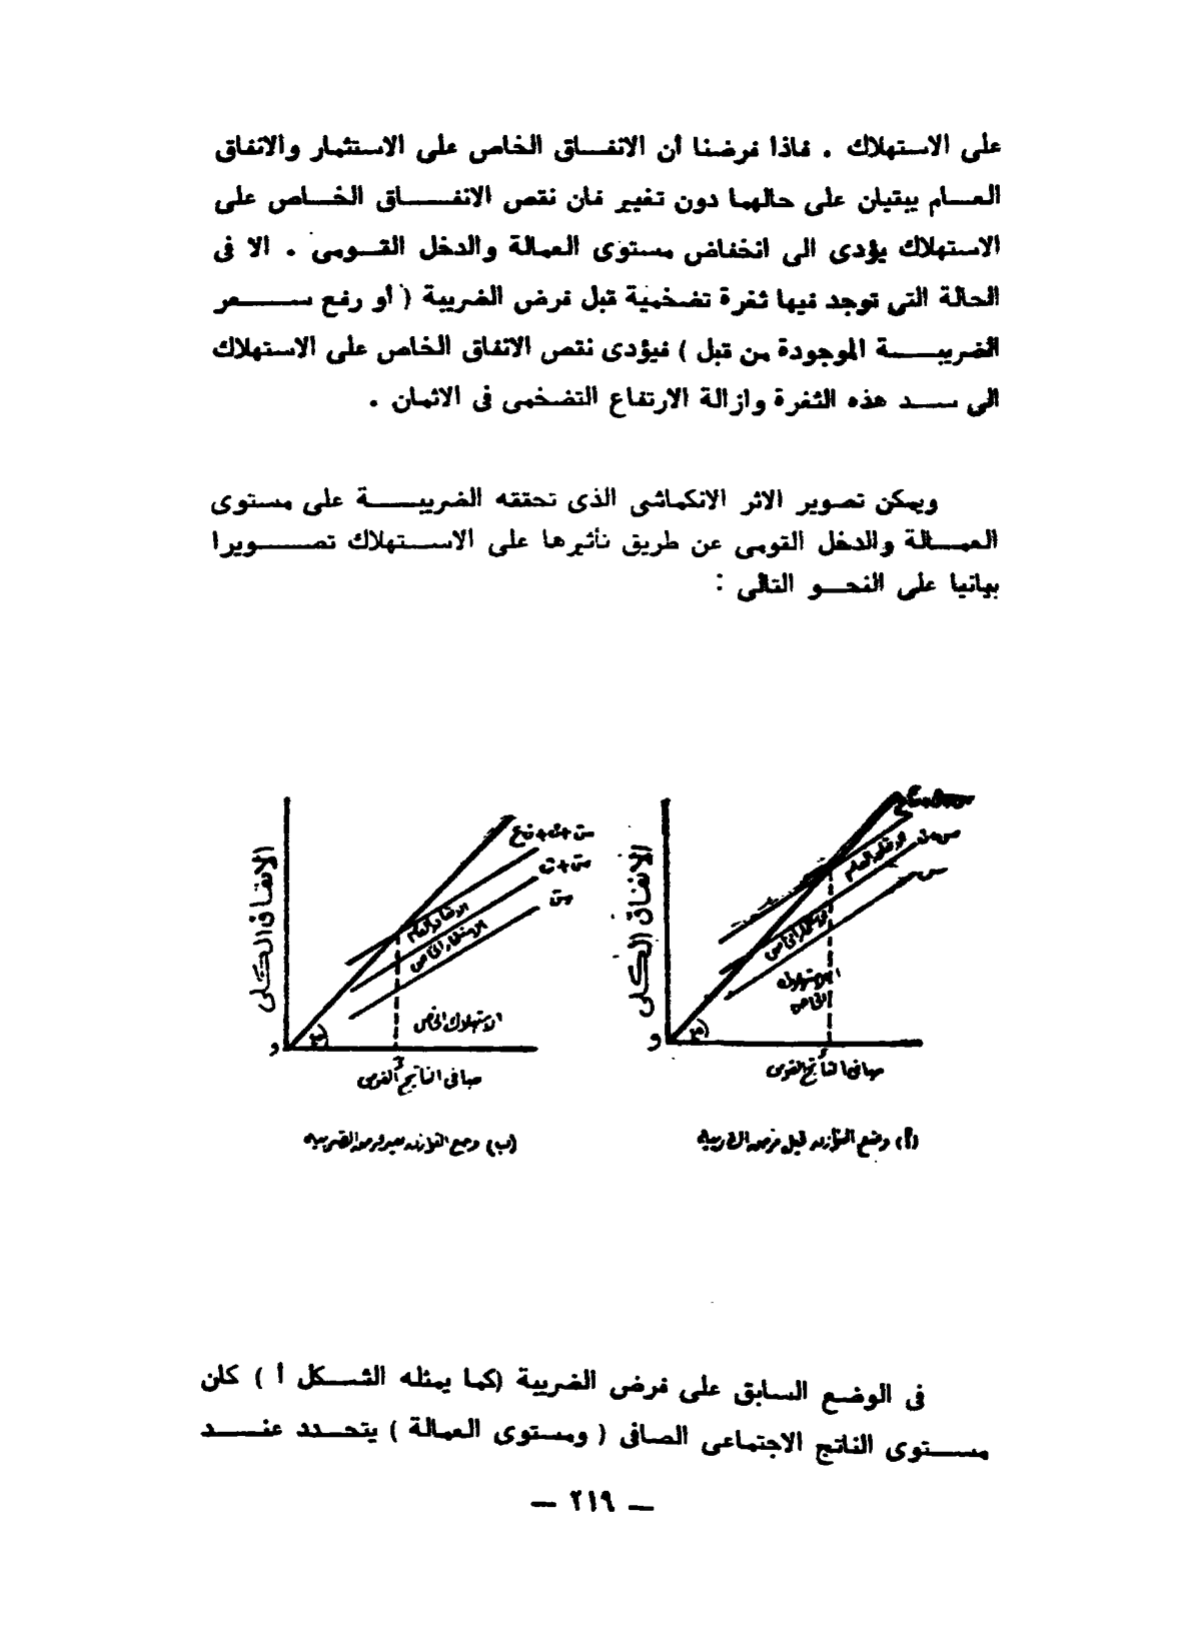 على الاستهلاك . فاذا فرضنا أن الانفاق الخاص على الاستثمار والانفاق
العام يبقيان على حالهما دون تغيير فان نقص الانفاق الخاص على
الاستهلاك يؤدى الى انخفاض مستوى العمالة والدخل القومى . الا فى
الحالة التى توجد فيها ثغرة تضخمية قبل فرض الضريبة ( أو رفع سعر
الضريبة الموجودة من قبل ) فيؤدى نقص الانفاق الخاص على الاستهلاك
الى سد هذه الثغرة وازالة الارتفاع التضخمى فى الاثمان .
ويمكن تصوير الاثر الانكماشى الذى تحققه الضريبة على مستوى
العمالة والدخل القومى عن طريق تأثيرها على الاستهلاك تصويرا
بيانيا على النحو التالى :
الانفاق الكلى
س + ث
س
الانفاق العام
الاستثمار الخاص
الاستهلاك
الخاص
و
صافى الناتج القومى
(أ) وضع التوازن قبل فرض الضريبة
الانفاق الكلى
الانفاق العام
الاستثمار الخاص
الاستهلاك الخاص
و
صافى الناتج القومى
(ب) وضع التوازن بعد فرض الضريبة
فى الوضع السابق على فرض الضريبة (كما يمثله الشكل أ ) كان
مستوى الناتج الاجتماعى الصافى ( ومستوى العمالة ) يتحدد عند
— ٢١٩ —